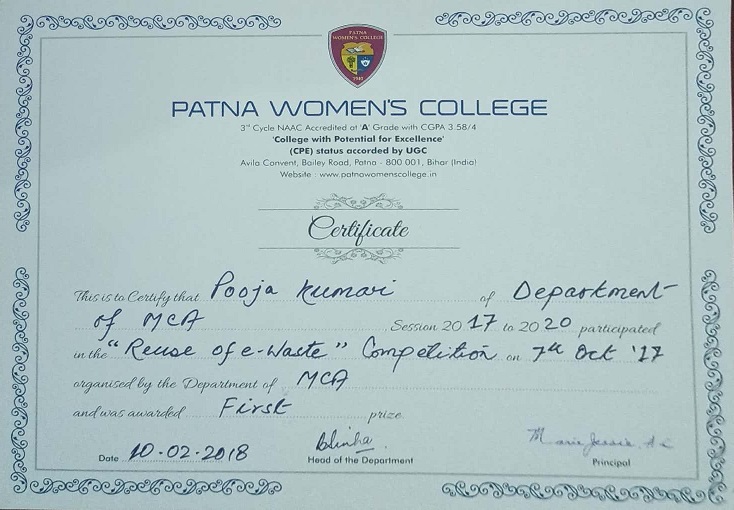 PATNA
WOMEN'S COLLEGE
1940
PATNA WOMEN'S COLLEGE
3rd Cycle NAAC Accredited at 'A' Grade with CGPA 3.58/4
'College with Potential for Excellence'
(CPE) status accorded by UGC
Avila Convent, Bailey Road, Patna - 800 001, Bihar (India)
Website : www.patnawomenscollege.in
Certificate
This is to Certify that Pooja Kumari of Department
of MCA Session 2017 to 2020 participated
in the "Reuse of e-Waste" Competition on 7th Oct '17
organised by the Department of MCA
and was awarded First prize
Date 10.02.2018
Head of the Department
Principal